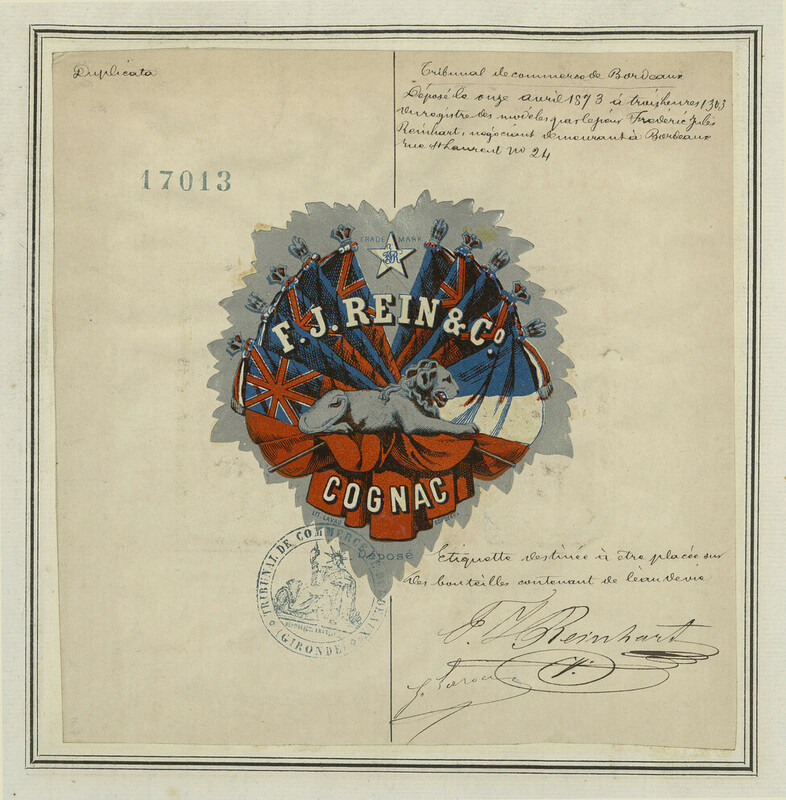 Duplicata
Tribunal de commerce de Bordeaux
Déposé le onze avril 1873 à trois heures
du registre des modèles par le sieur Frederic Jules
Reinhart, négociant demeurant à Bordeaux
rue St Laurent No 24
17013
TRADE MARK
F. J. REIN & Co
COGNAC
LIT. LAVAU
Déposé
TRIBUNAL DE COMMERCE DE
GIRONDE
Etiquette destinée à être placée sur
des bouteilles contenant de l'eau de vie
F. J. Reinhart